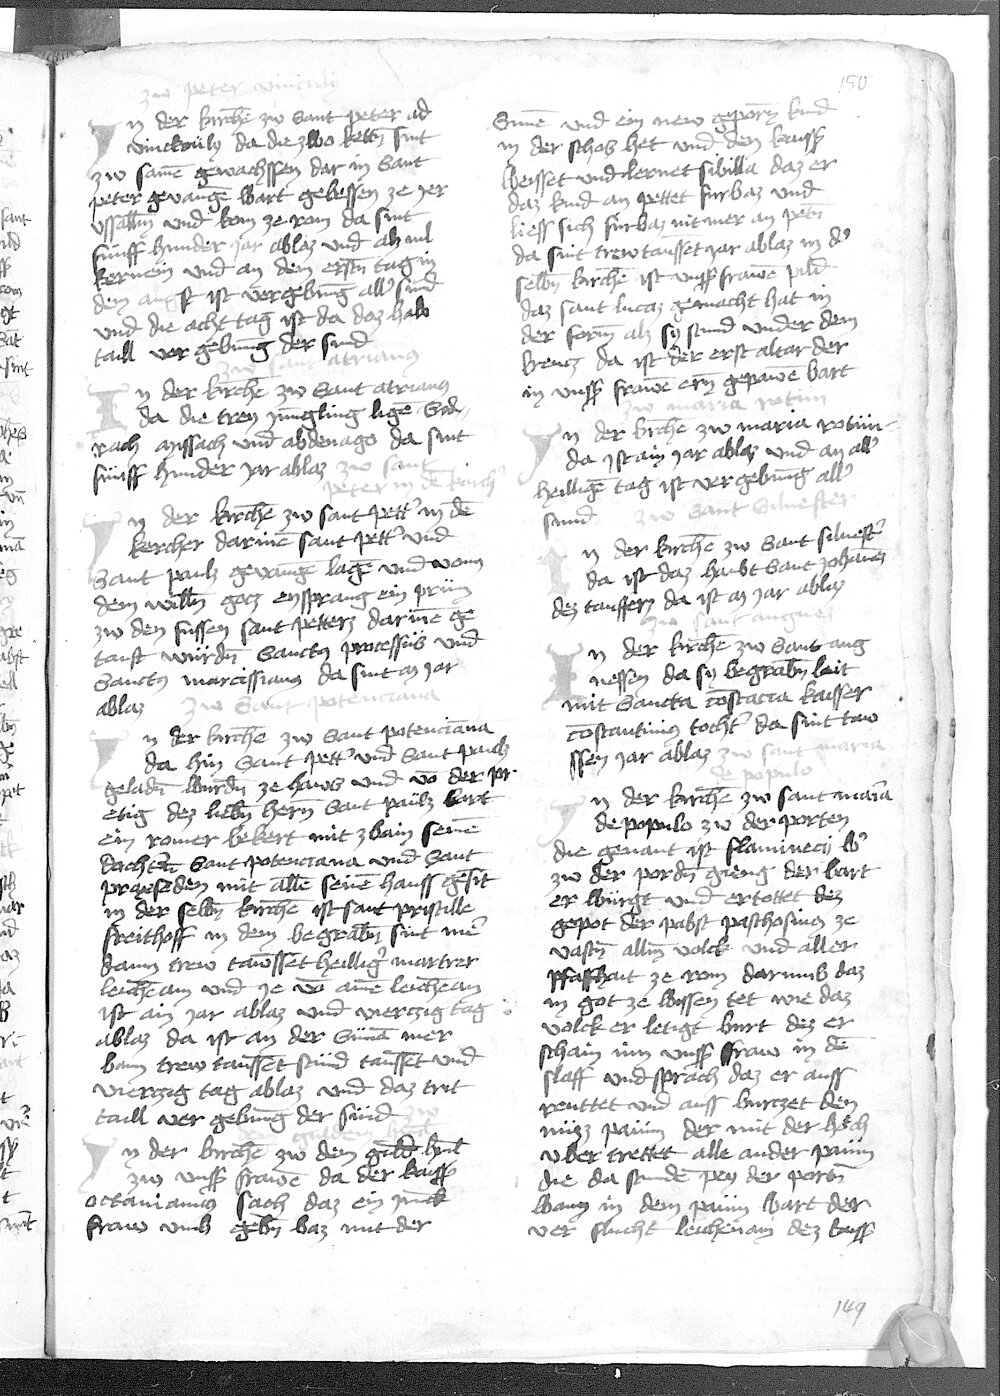 zw peter vincula
In der kirchē zw Sant peter ad
vinckula da die zwo kettn̄ sint
zw samē gewachssen dar in Sant
peter gevangē wart gebessen ze Jer
ussallm̄ und kom ze rom da sint
funff hunder jar ablaz und
und an dem erstn̄ tag in
dem august ist vergebung all sund
und die acht tag ist da daz halb
taill ver gebung der sund
zw sant atrianus
In der kirchē zw Sant atrianus
da die trey jungling ligē Sid
rach missach und abdenago da sint
funff hunder jar ablaz zw sant
peter in dē kerch
In der kirchē zw sant pett in dē
kercher darinē sant pett und
Sant pauls gevangē lagē und vonn
dem willn̄ gotz ensprang ein prun
zw den fussen sant petterz darinē ge
taust wurdn̄ Sanctus processus und
Sanctus marcissianus da sint jar
ablaz zw Sant potenciana
In der kirchē zw Sant potenciana
da hin Sant pett und Sant pauls
geladn̄ wurdn̄ ze haws und vō der pr
etig dez liebn̄ hern̄ Sant paulz wart
ein romer bekert mit zwain seinē
tochtern̄ Sant potenciana und Sant
praxseden mit allē seinē hauss gesint
in der selbn̄ kirchē ist sant pristille
freithoff in dem begrabn̄ sint mer
dann trew tawsset heillig martrer
leichēam und Je vō ainē leichēam
ist ain jar ablaz und vierczig tag
ablaz da ist an der Suma mer
wann trew tausset sund tausset und
vierczig tag ablaz und daz trit
taill ver gebung der sund zw
gulden
In der kirchē zw dem guldn̄ himl
zw unss frawē da der kaiss
octavianus sach daz ein junck
fraw und gebn̄ waz mit der
150
Sunē und ein new geporn̄ kind
in der schos het und den kaiss
weisset und lernet sibilla daz er
daz kind an pettet furbaz und
liess sich furbaz nit mer an petn̄
da sint trew tausset jar ablaz in d'
selbn̄ kirchē ist unss frawē pild
daz sant lucaz gemacht hat in
der form alz sy stund under dem
kreucz da ist der erst altar der
in unss frawē ern̄ gepawē wart
zw maria rotun
In der kirchē zw maria rotun
da ist ain jar ablaz und an all
heilligē tag ist vergebung all
sund zw Sant Silvester
In der kirchē zw Sant silvest
da ist daz haubt Sant johanes
dez tauffern da ist jar ablaz
zw sant angnes
In der kirchē zw Sant ang
nessen da sy begrabn̄ leit
mit Sancta cōstancia kaisser
cōstantinus tocht da sint taw
ssen jar ablaz zw sant maria
de populo
In der kirchē zw sant maria
de populo zw der porten
die genant ist flaminea w'
zw der pordn̄ gieng der wart
er wurgt und ertottet dez
gepot der pabst paschosius ze
vastn̄ allm̄ volck und aller
pfaffhait ze rom darumb daz
in got ze wissen tet wie daz
volck er letigt wurt dez er
schain im unss fraw in dē
slaff und sprach daz er auss
reuttet und auss wurczet den
nusz paum der mit der hoch
uber trettet alle ander paum
die da stundē pey der portn̄
wann in dem paum wart der
ver flucht leichenam dez kaiss
149